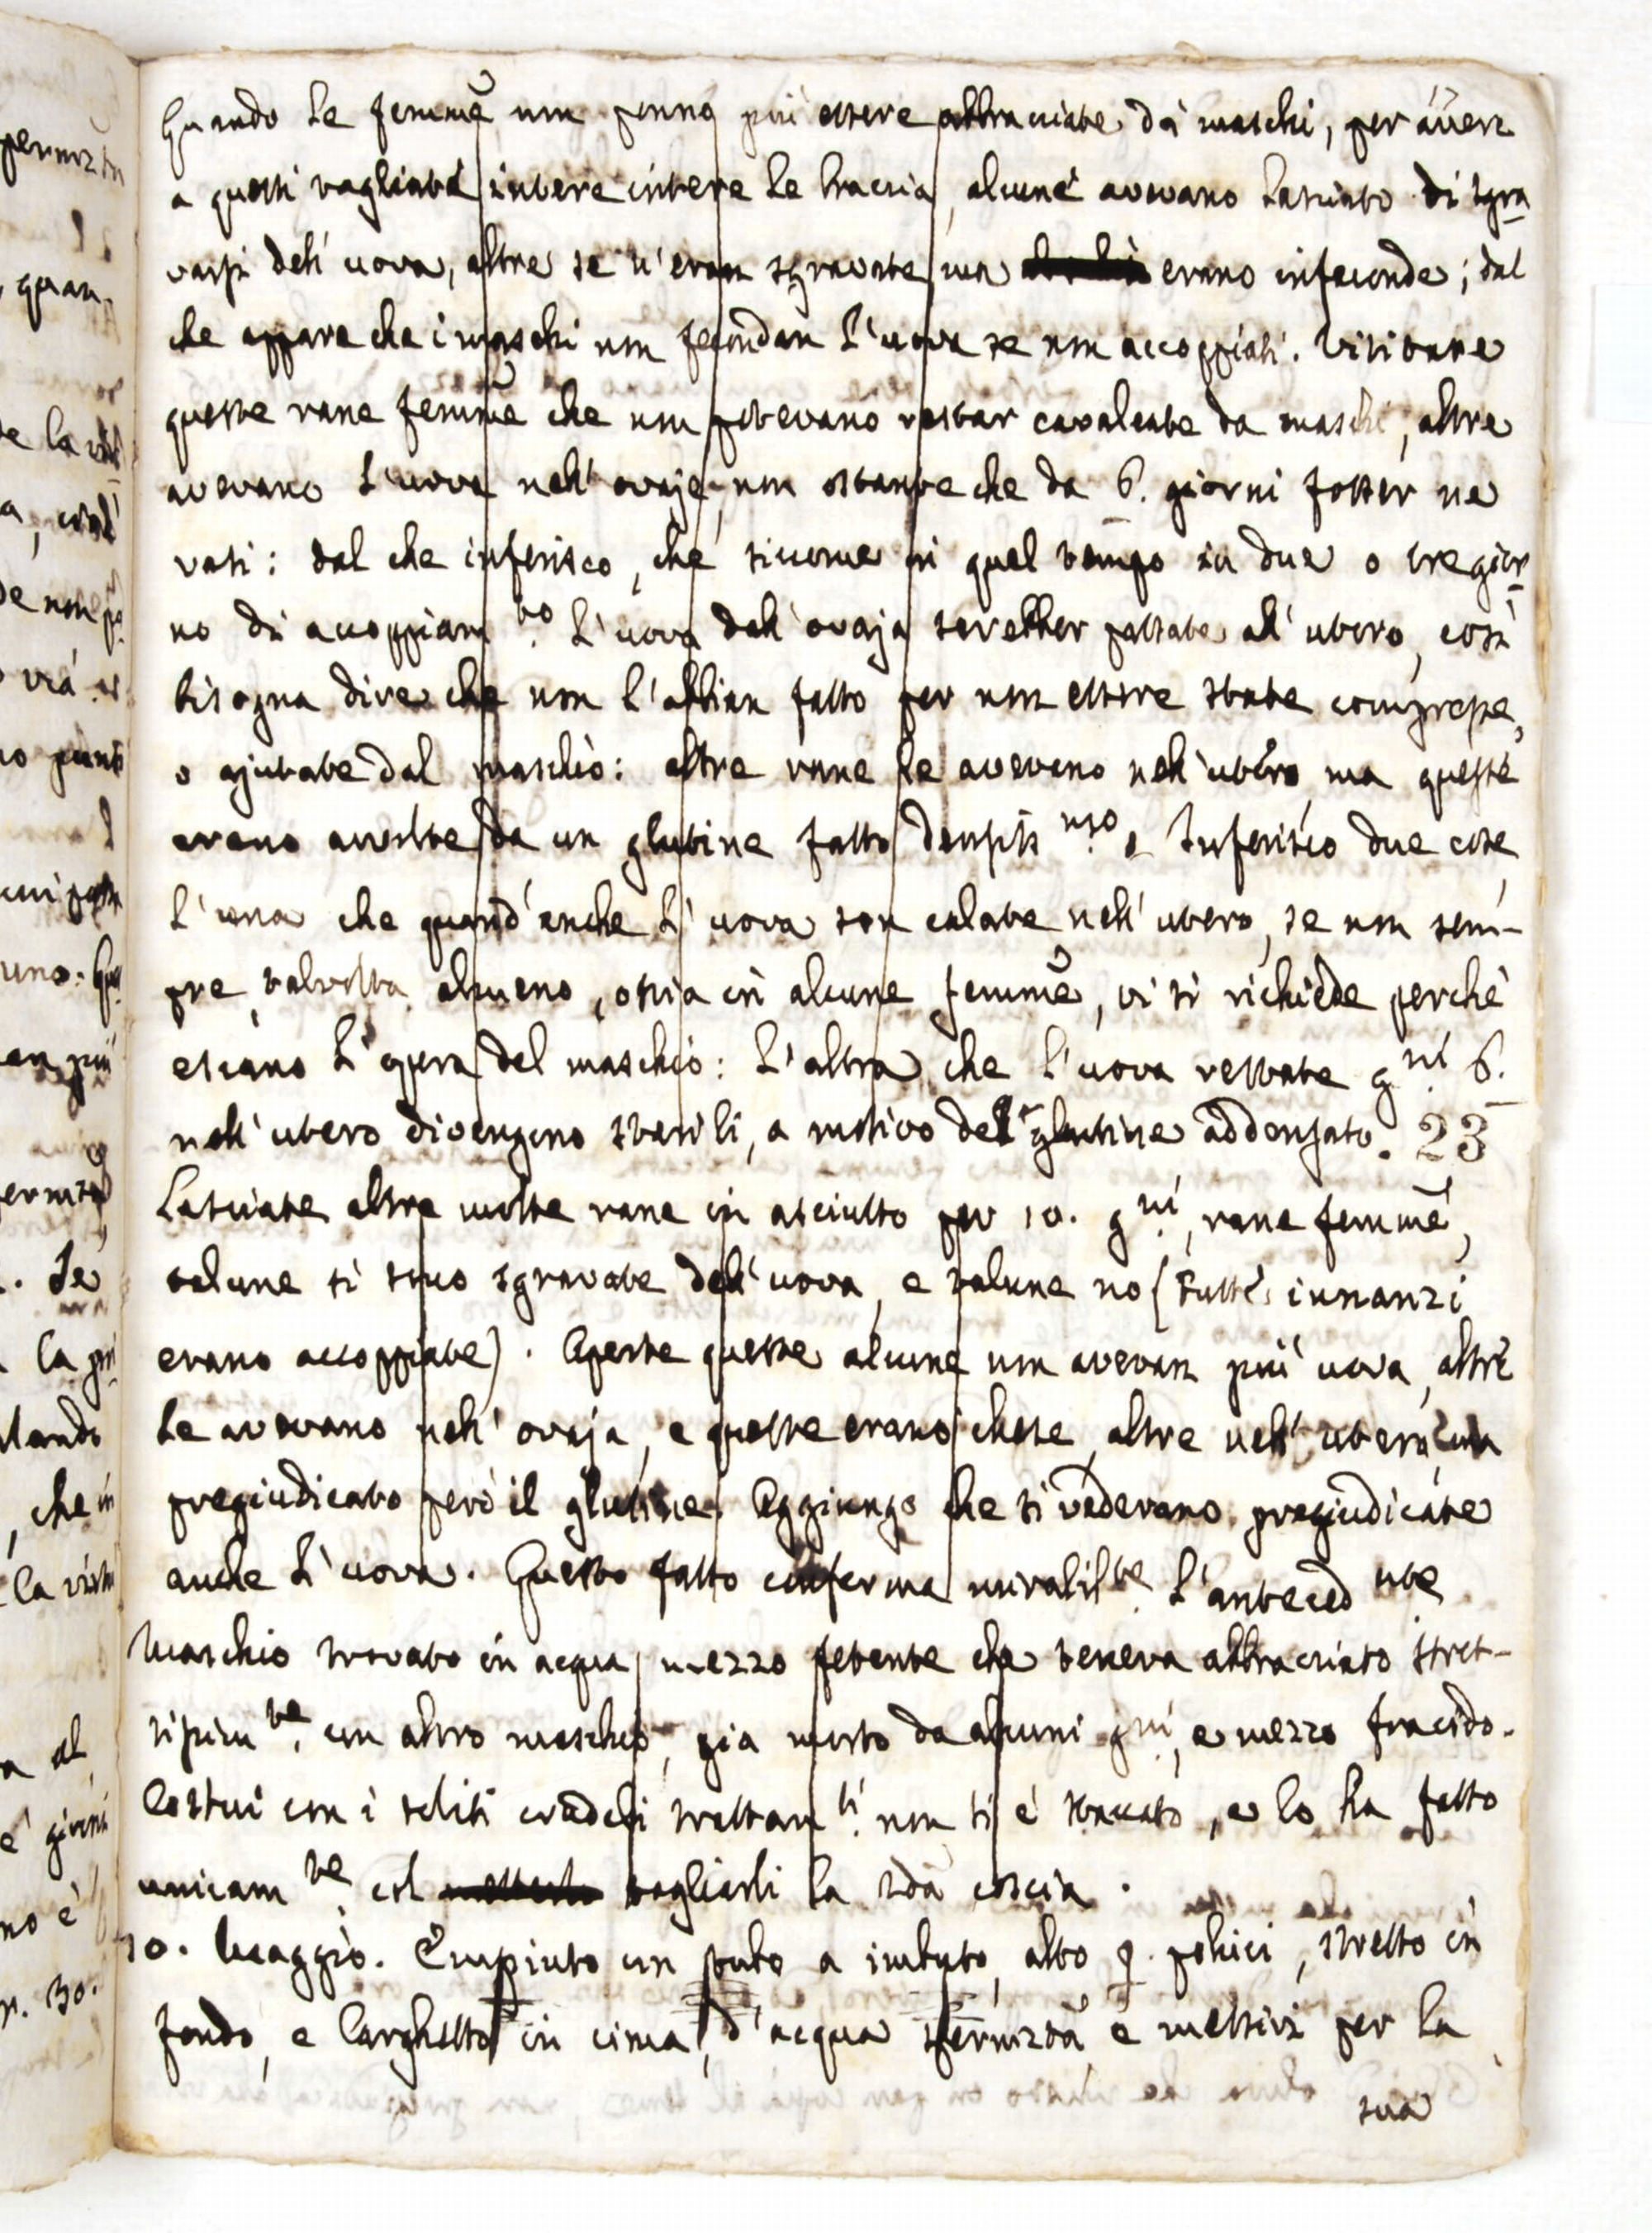 Quando le femmē non ponno più essere abbracciate da maschi, per aver
a questi tagliate intere intere le braccia, alcune avevano lasciato di sgra
varsi dell' uova, altre se n'eran sgravate, ma erano infeconde; dal
che appare che i maschi non fecondan l'uova se non accoppiati. Visitate
queste rane femmē che non potevano restar cavalcate da maschi, altre
avevano l'uova nell' ovaje, non ostante che da 6. giorni fosser ne
vati: dal che inferisco, che siccome in quel tempo in due o tre gior
no di accoppiam.to l'uova dall' ovaja sarebber passate all' utero, così
bisogna dire che non l'abbian fatto per non essere state compresse,
o ajutate dal maschio: altre rane le avevano nell' utero, ma queste
erano avvolte da un glutine fatto densiss.mo. Inferisco due cose
l'una che quand' anche l' uova son calate nell' utero, se non sem-
pre, talvolta almeno, ossia in alcune femmē, vi si richiede perchè
escano l' opera del maschio: L'altra che l'uova restate g.ni 6.
nell' utero divengono sterili, a motivo del glutine addensato. 23
Lasciate altre molte rane in asciutto per 10. g.ni, rane femmē,
talune si sono sgravate dell' uova, e talune no (tutte innanzi
erano accoppiate). Aperte queste alcune non avevan più uova, altre
le avevano nell' ovaja, e queste erano chese, altre nell' utero, ma
pregiudicato però il glutine. Aggiungo che si vedevano pregiudicate
anche l' uova. Questo fatto conferma mirabil.te l'anteced.nte
Maschio trovato in acqua mezzo fetente che teneva abbracciato stret-
tissim.te un altro maschio, già morto da alcuni g.ni, e mezzo fracido.
Costui con i soliti crudeli trattam.ti non si è staccato, e lo ha fatto
unicam.te col tagliarli la 2da coscia.
10. Maggio. Empiuto un tubo a imbuto, alto 9. pollici, stretto in
fondo, e larghetto in cima, d' acqua spermizta e messivi per la
sua